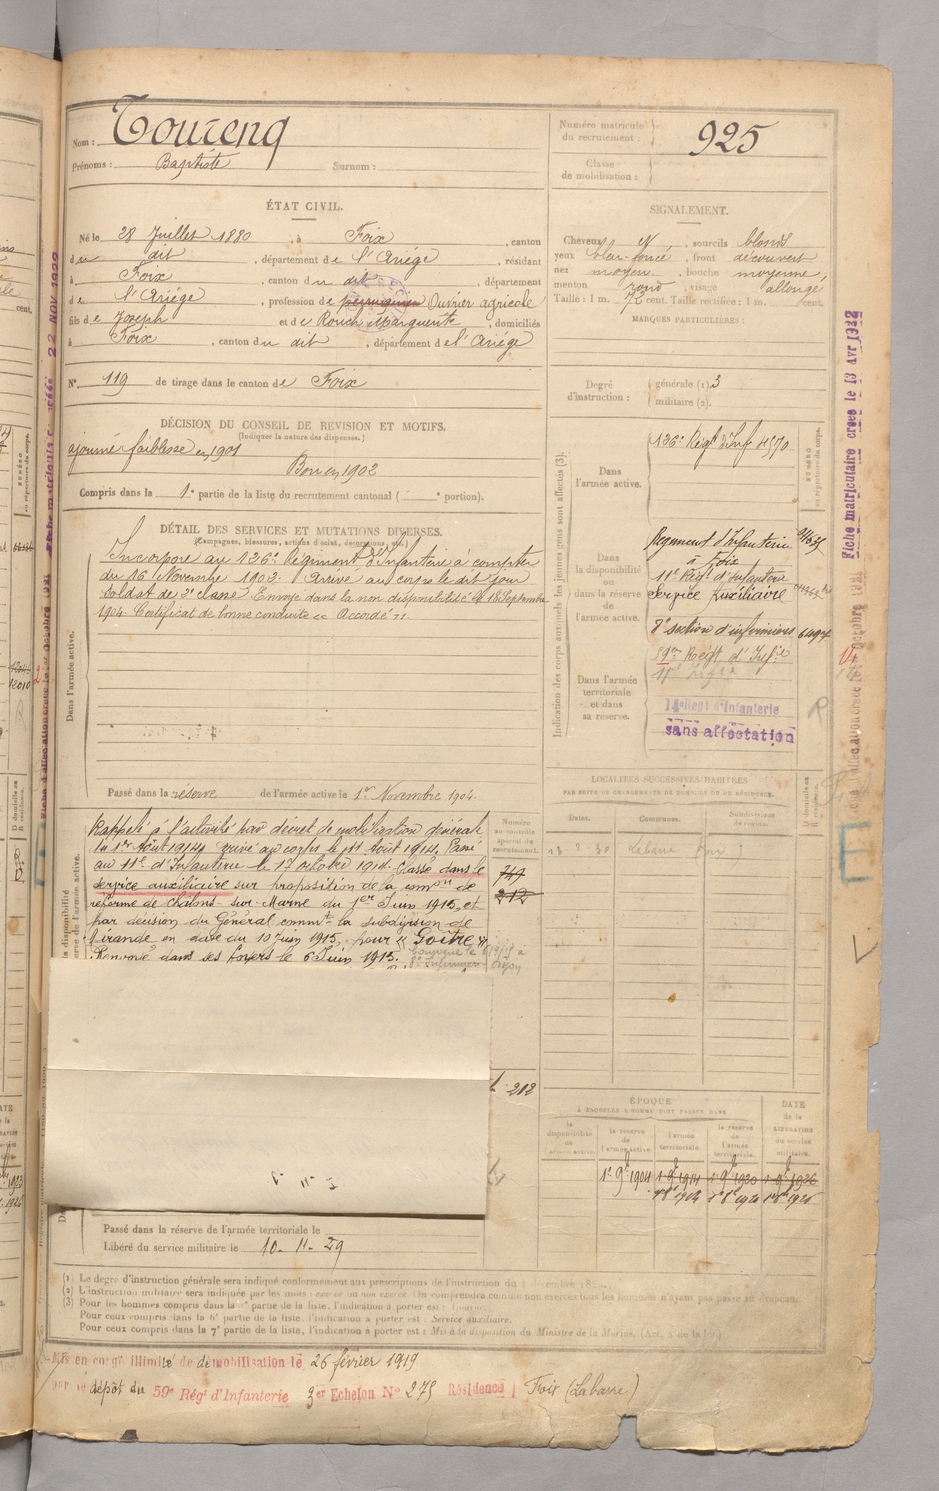 Nom : Tourenq
Prénoms : Baptiste Surnom :
Numéro matricule du recrutement : 925
Classe de mobilisation :
ÉTAT CIVIL.
Né le 28 Juillet 1880, à Foix, canton
du dit, département de l'Ariège, résidant
à Foix, canton du dit, département
de l'Ariège, profession de Ouvrier agricole
fils de Joseph et de Rouch Marguerite, domiciliés
à Foix, canton du dit, département de l'Ariège
N° 119 de tirage dans le canton de Foix
SIGNALEMENT.
Cheveux N, sourcils blonds
yeux bleu-foncé, front découvert
nez moyen, bouche moyenne,
menton rond, visage allongé
Taille : 1 m. 72 cent. Taille rectifiée : 1 m. cent.
MARQUES PARTICULIÈRES :
Degré d'instruction : générale (1) 3
militaire (2).
DÉCISION DU CONSEIL DE REVISION ET MOTIFS.
(Indiquer la nature des dispenses.)
ajourné faiblesse en 1901
Bon en 1902
Compris dans la 1e partie de la liste du recrutement cantonal ( e portion).
DÉTAIL DES SERVICES ET MUTATIONS DIVERSES.
(Campagnes, blessures, actions d'éclat, décorations, etc.)
Dans l'armée active.
Incorporé au 126e Régiment d'Infanterie à compter
du 16 Novembre 1902. Arrivé au corps le dit jour
Soldat de 2e classe. Envoyé dans la non disponibilité le 18 Septembre
1904. Certificat de bonne conduite "Accordé".
Passé dans la réserve de l'armée active le 1er Novembre 1904.
Rappelé à l'activité par décret de mobilisation générale
du 1er Août 1914, arrivé au corps le 11 Août 1914. Passé
au 11e d'Infanterie le 17 octobre 1914. Classé dans le
service auxiliaire sur proposition de la comon de
réforme de Châlons-sur-Marne du 1er Juin 1915, et
par décision du Général commt la subdivision de
Mirande en date du 10 Juin 1915, pour "Goître".
Renvoyé dans ses foyers le 6 Juin 1915.
Numéro au contrôle spécial du recrutement.
747
212
212
Indication des corps auxquels les jeunes gens sont affectés (3).
Dans l'armée active.
126e Régt d'Inf 4570
NUMÉRO au répertoire du corps.
Dans la disponibilité ou dans la réserve de l'armée active.
Régiment d'Infanterie
à Foix
11e Régt d'Infanterie
Service Auxiliaire
8e section d'infirmiers 6497
59e Régt d'Infie
Dans l'armée territoriale et dans sa réserve.
14e Regt d'Infanterie
sans affectation
LOCALITÉS SUCCESSIVES HABITÉES
PAR SUITE DE CHANGEMENTS DE DOMICILE OU DE RÉSIDENCE.
Dates. Communes. Subdivisions de région. D domicile ou R résidence.
ÉPOQUE
À LAQUELLE L'HOMME DOIT PASSER DANS
la disponibilité de l'armée active.
la réserve de l'armée active.
l'armée territoriale.
la réserve de l'armée territoriale.
DATE de la LIBÉRATION du service militaire.
1er 9bre 1904 1er 9bre 1914 1er 9bre 1920 1er 9bre 1926
Passé dans la réserve de l'armée territoriale le
Libéré du service militaire le 10-11-29
(1) Le degré d'instruction générale sera indiqué conformément aux prescriptions de l'instruction du
(2) L'instruction militaire sera indiquée par les mots : exercé ou non exercé. On comprendra comme non exercés tous les hommes n'ayant pas passé au drapeau.
(3) Pour les hommes compris dans la partie de la liste, l'indication à porter est :
Pour ceux compris dans la 6e partie de la liste, l'indication à porter est : Service auxiliaire.
Pour ceux compris dans la 7e partie de la liste, l'indication à porter est : Mis à la disposition du Ministre de la Marine. (Art. 4 de la loi)
Mis en congé illimité de démobilisation le 26 février 1919
par le dépôt du 59e Régt d'Infanterie 3er Echelon N° 275 Résidence Foix (Labarre)
Fiche matriculaire créée le 13 Avr 1922
E